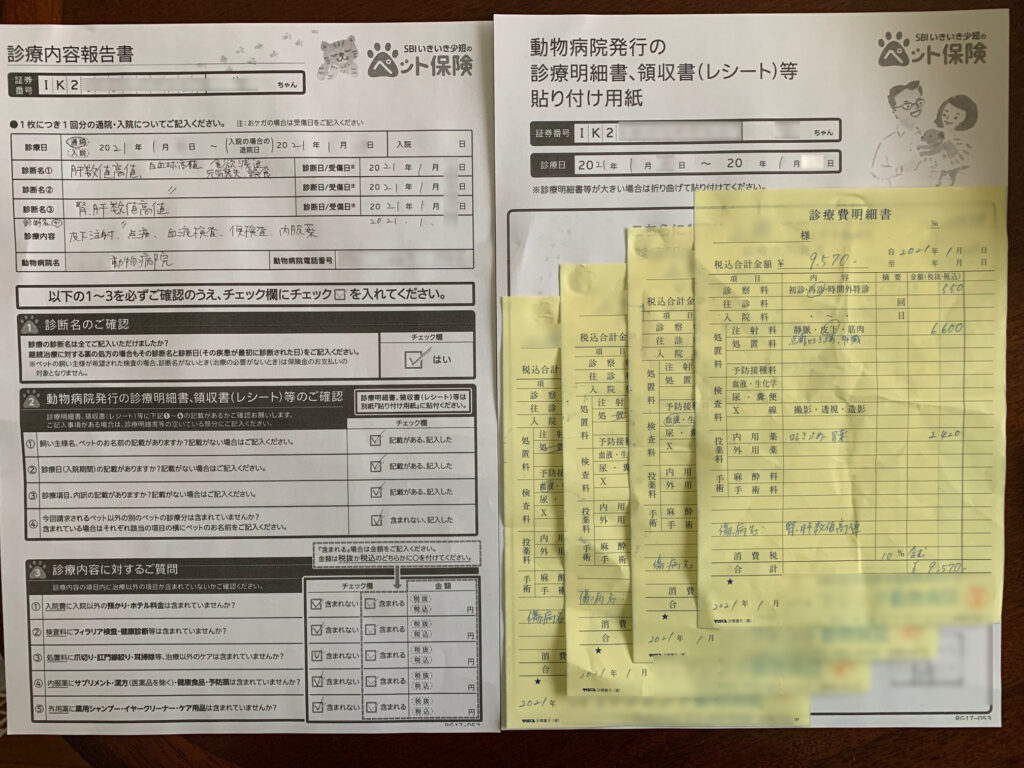 診療内容報告書
SBIいきいき少短の
ペット保険
証券番号 I K 2 ちゃん
●1枚につき1回分の通院・入院についてご記入ください。 注:おケガの場合は受傷日をご記入ください
診療日 通院 入院 2021年 1月 日 ～ (入院の場合の退院日) 2021年 1月 日 入院 日
診断名① 肝数値高値、 食欲減退 元気喪失 診断日/受傷日※ 2021年 1月 日
診断名② 〃 診断日/受傷日※ 2021年 1月 日
診断名③ 腎肝数値高値 診断日/受傷日※ 2021年 1月 日
診断名④ 〃 2021. 1.
診療内容 皮下注射、点滴、血液検査、便検査、内服薬
動物病院名 動物病院 動物病院電話番号
以下の1～3を必ずご確認のうえ、チェック欄にチェック☑を入れてください。
1 診断名のご確認
チェック欄
診療の診断名は全てご記入いただけましたか?
継続治療に対する薬の処方の場合もその診断名と診断日(その疾患が最初に診断された日)をご記入ください。
※ペットの飼い主様が希望された検査の場合、診断名がないとき(治療の必要がないとき)は保険金のお支払いの
対象となりません。
☑ はい
2 動物病院発行の診療明細書、領収書(レシート)等のご確認
診療明細書、領収書(レシート)等は
別紙「貼り付け用紙」に貼付ください。
診療明細書、領収書(レシート)等に下記①～④の記載があるかご確認お願いします。
ご記入事項がある場合は、診療明細書等の空いている部分にご記入ください。
チェック欄
① 飼い主様名、ペットのお名前の記載がありますか?記載がない場合はご記入ください。 ☑ 記載がある、記入した
② 診療日(入院期間)の記載がありますか?記載がない場合はご記入ください。 ☑ 記載がある、記入した
③ 診療項目、内訳の記載がありますか?記載がない場合はご記入ください。 ☑ 記載がある、記入した
④ 今回請求されるペット以外の別のペットの診療分は含まれていませんか?
含まれている場合はそれぞれ該当の項目の横にペットのお名前をご記入ください。 ☑ 含まれない、記入した
「含まれる」場合は金額をご記入ください。
金額は税抜か税込のどちらかに○を付けてください。
3 診療内容に対するご質問
診療内容の項目内に治療以外の項目が含まれていないかご確認ください。
チェック欄 金額
① 入院費に入院以外の預かり・ホテル料金は含まれていませんか? ☑ 含まれない ☑ 含まれる (税抜) (税込) 円
② 検査料にフィラリア検査・健康診断等は含まれていませんか? ☑ 含まれない ☑ 含まれる (税抜) (税込) 円
③ 処置料に爪切り・肛門線絞り・耳掃除等、治療以外のケアは含まれていませんか? ☑ 含まれない ☑ 含まれる (税抜) (税込) 円
④ 内服薬にサプリメント・漢方(医薬品を除く)・健康食品・予防薬は含まれていませんか? ☑ 含まれない ☑ 含まれる (税抜) (税込) 円
⑤ 外用薬に薬用シャンプー・イヤークリーナー・ケア用品は含まれていませんか? ☑ 含まれない ☑ 含まれる (税抜) (税込) 円
動物病院発行の
診療明細書、領収書(レシート)等
貼り付け用紙
SBIいきいき少短の
ペット保険
証券番号 I K 2 ちゃん
診療日 2021年 1月 日 ～ 20 年 月 日
※診療明細書等が大きい場合は折り曲げて貼り付けてください。
診療費明細書
様 №
自 2021年 1月 日
税込合計金額 ¥ 9,570- 至 年 月 日
項目 内容 摘要 金額(税抜・税込)
診察料 初診・再診・時間外特診 550
往診料 回
入院料 ・ ～ ・ 日
処置料 注射料 静脈・皮下・筋肉 6,600
処置料
予防接種料
検査料 血液・生化学
尿・糞便
X 線 撮影・透視・造影
投薬料 内用薬 吐き止め 胃薬 2,420
外用薬
手術 麻酔料
手術料
傷病名: 腎肝数値高値
消費税 10% 含む
合計 ¥9,570-
★
2021年 1月
RG17-053